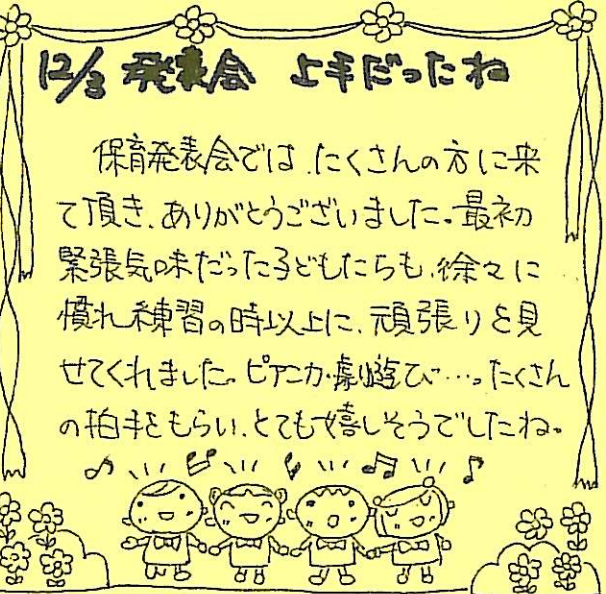 12/3 発表会 上手だったね
保育発表会では、たくさんの方に来
て頂き、ありがとうございました。最初
緊張気味だった子どもたちも、徐々に
慣れ練習の時以上に、頑張りを見
せてくれました。ピアニカ・劇遊び…。たくさん
の拍手をもらい、とても嬉しそうでしたね。